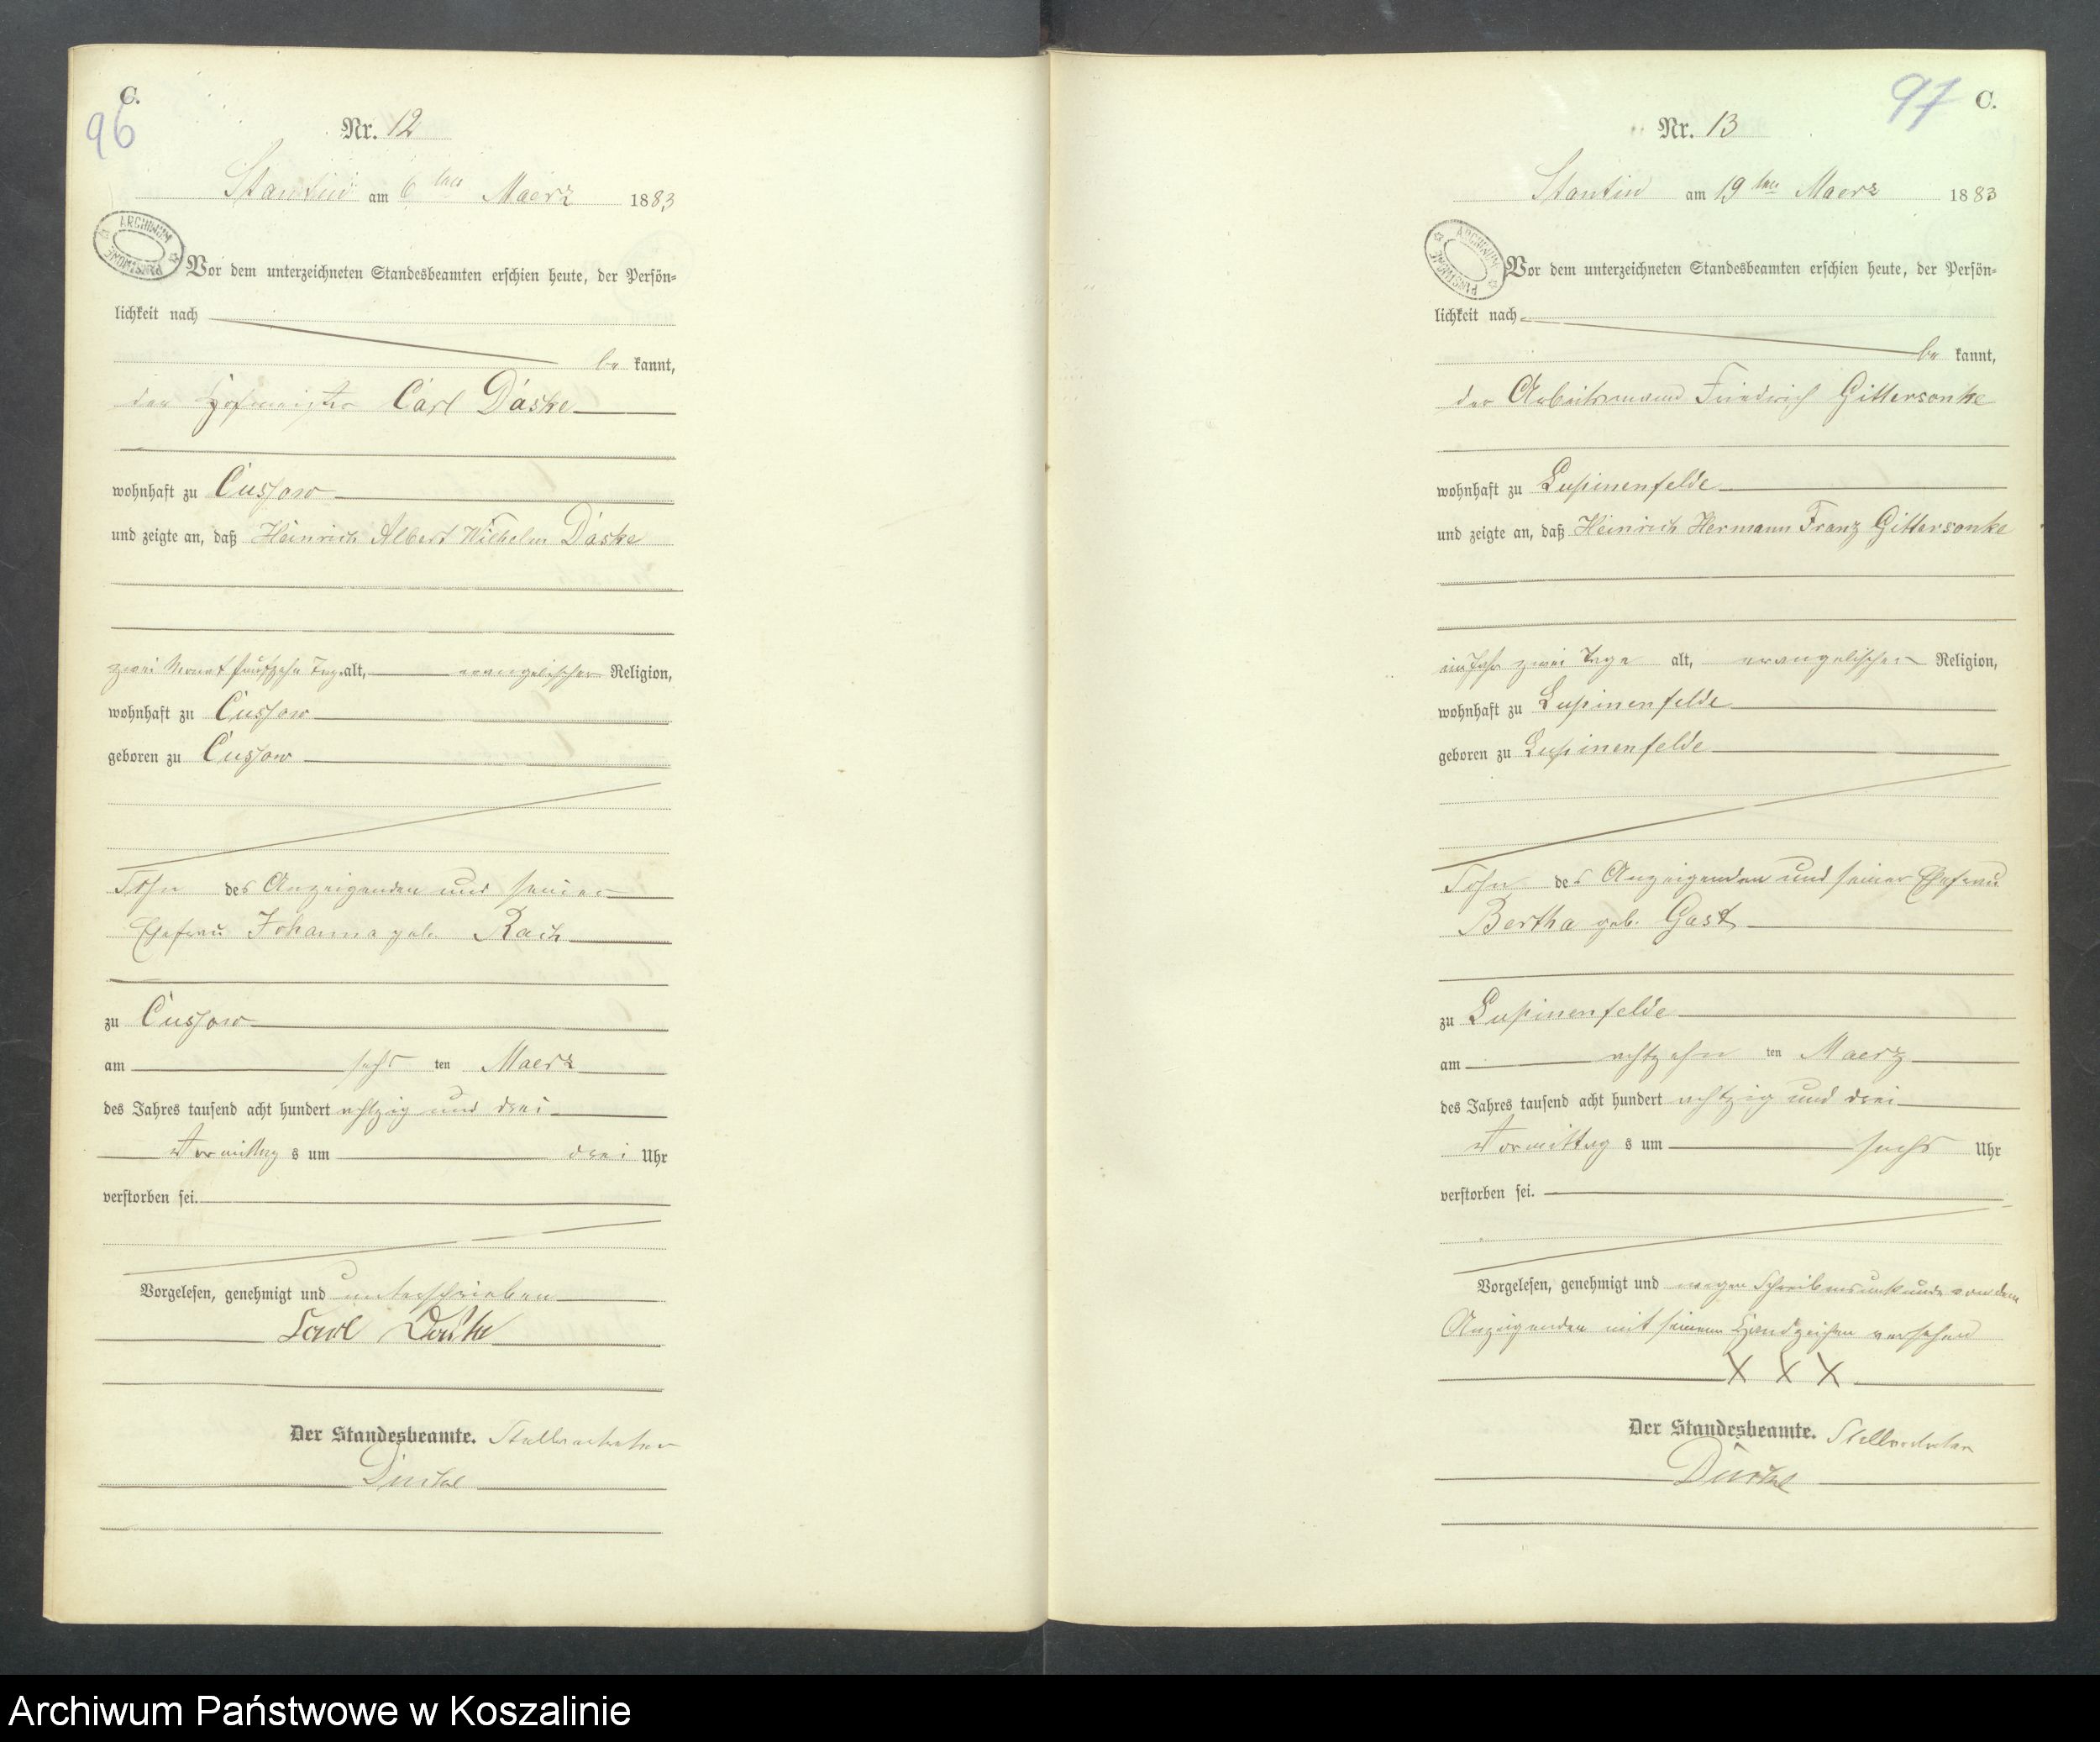 C.
96
Nr. 12
Stantin am 6 ten Maerz 1883
ARCHIWUM PAŃSTWOWE
Vor dem unterzeichneten Standesbeamten erschien heute, der Persön=
lichkeit nach
be kannt,
der Hofmeister Carl Däske
wohnhaft zu Cussow
und zeigte an, daß Heinrich Albert Wilhelm Däske
zwei Monat fünfzehn Tage alt, evangelischer Religion,
wohnhaft zu Cussow
geboren zu Cussow
Sohn des Anzeigenden und seiner
Ehefrau Johanna geb. Rach
zu Cussow
am sechs ten Maerz
des Jahres tausend acht hundert achtzig und drei
Vormittag s um drei Uhr
verstorben sei.
Vorgelesen, genehmigt und unterschrieben
Carl Däske
Der Standesbeamte. Stellvertreter
97 C.
Nr. 13
Stantin am 19 ten Maerz 1883
ARCHIWUM PAŃSTWOWE
Vor dem unterzeichneten Standesbeamten erschien heute, der Persön=
lichkeit nach
be kannt,
der Arbeitsmann Friedrich Gittersonke
wohnhaft zu Lupinenfelde
und zeigte an, daß Heinrich Hermann Franz Gittersonke
ein Jahr zwei Tage alt, evangelischer Religion,
wohnhaft zu Lupinenfelde
geboren zu Lupinenfelde
Sohn des Anzeigenden und seiner Ehefrau
Bertha geb. Gast
zu Lupinenfelde
am achtzehn ten Maerz
des Jahres tausend acht hundert achtzig und drei
Vormittag s um sechs Uhr
verstorben sei.
Vorgelesen, genehmigt und wegen Schreibensunkunde von dem
Anzeigenden mit seinem Handzeichen versehen
X X X
Der Standesbeamte. Stellvertreter
Archiwum Państwowe w Koszalinie